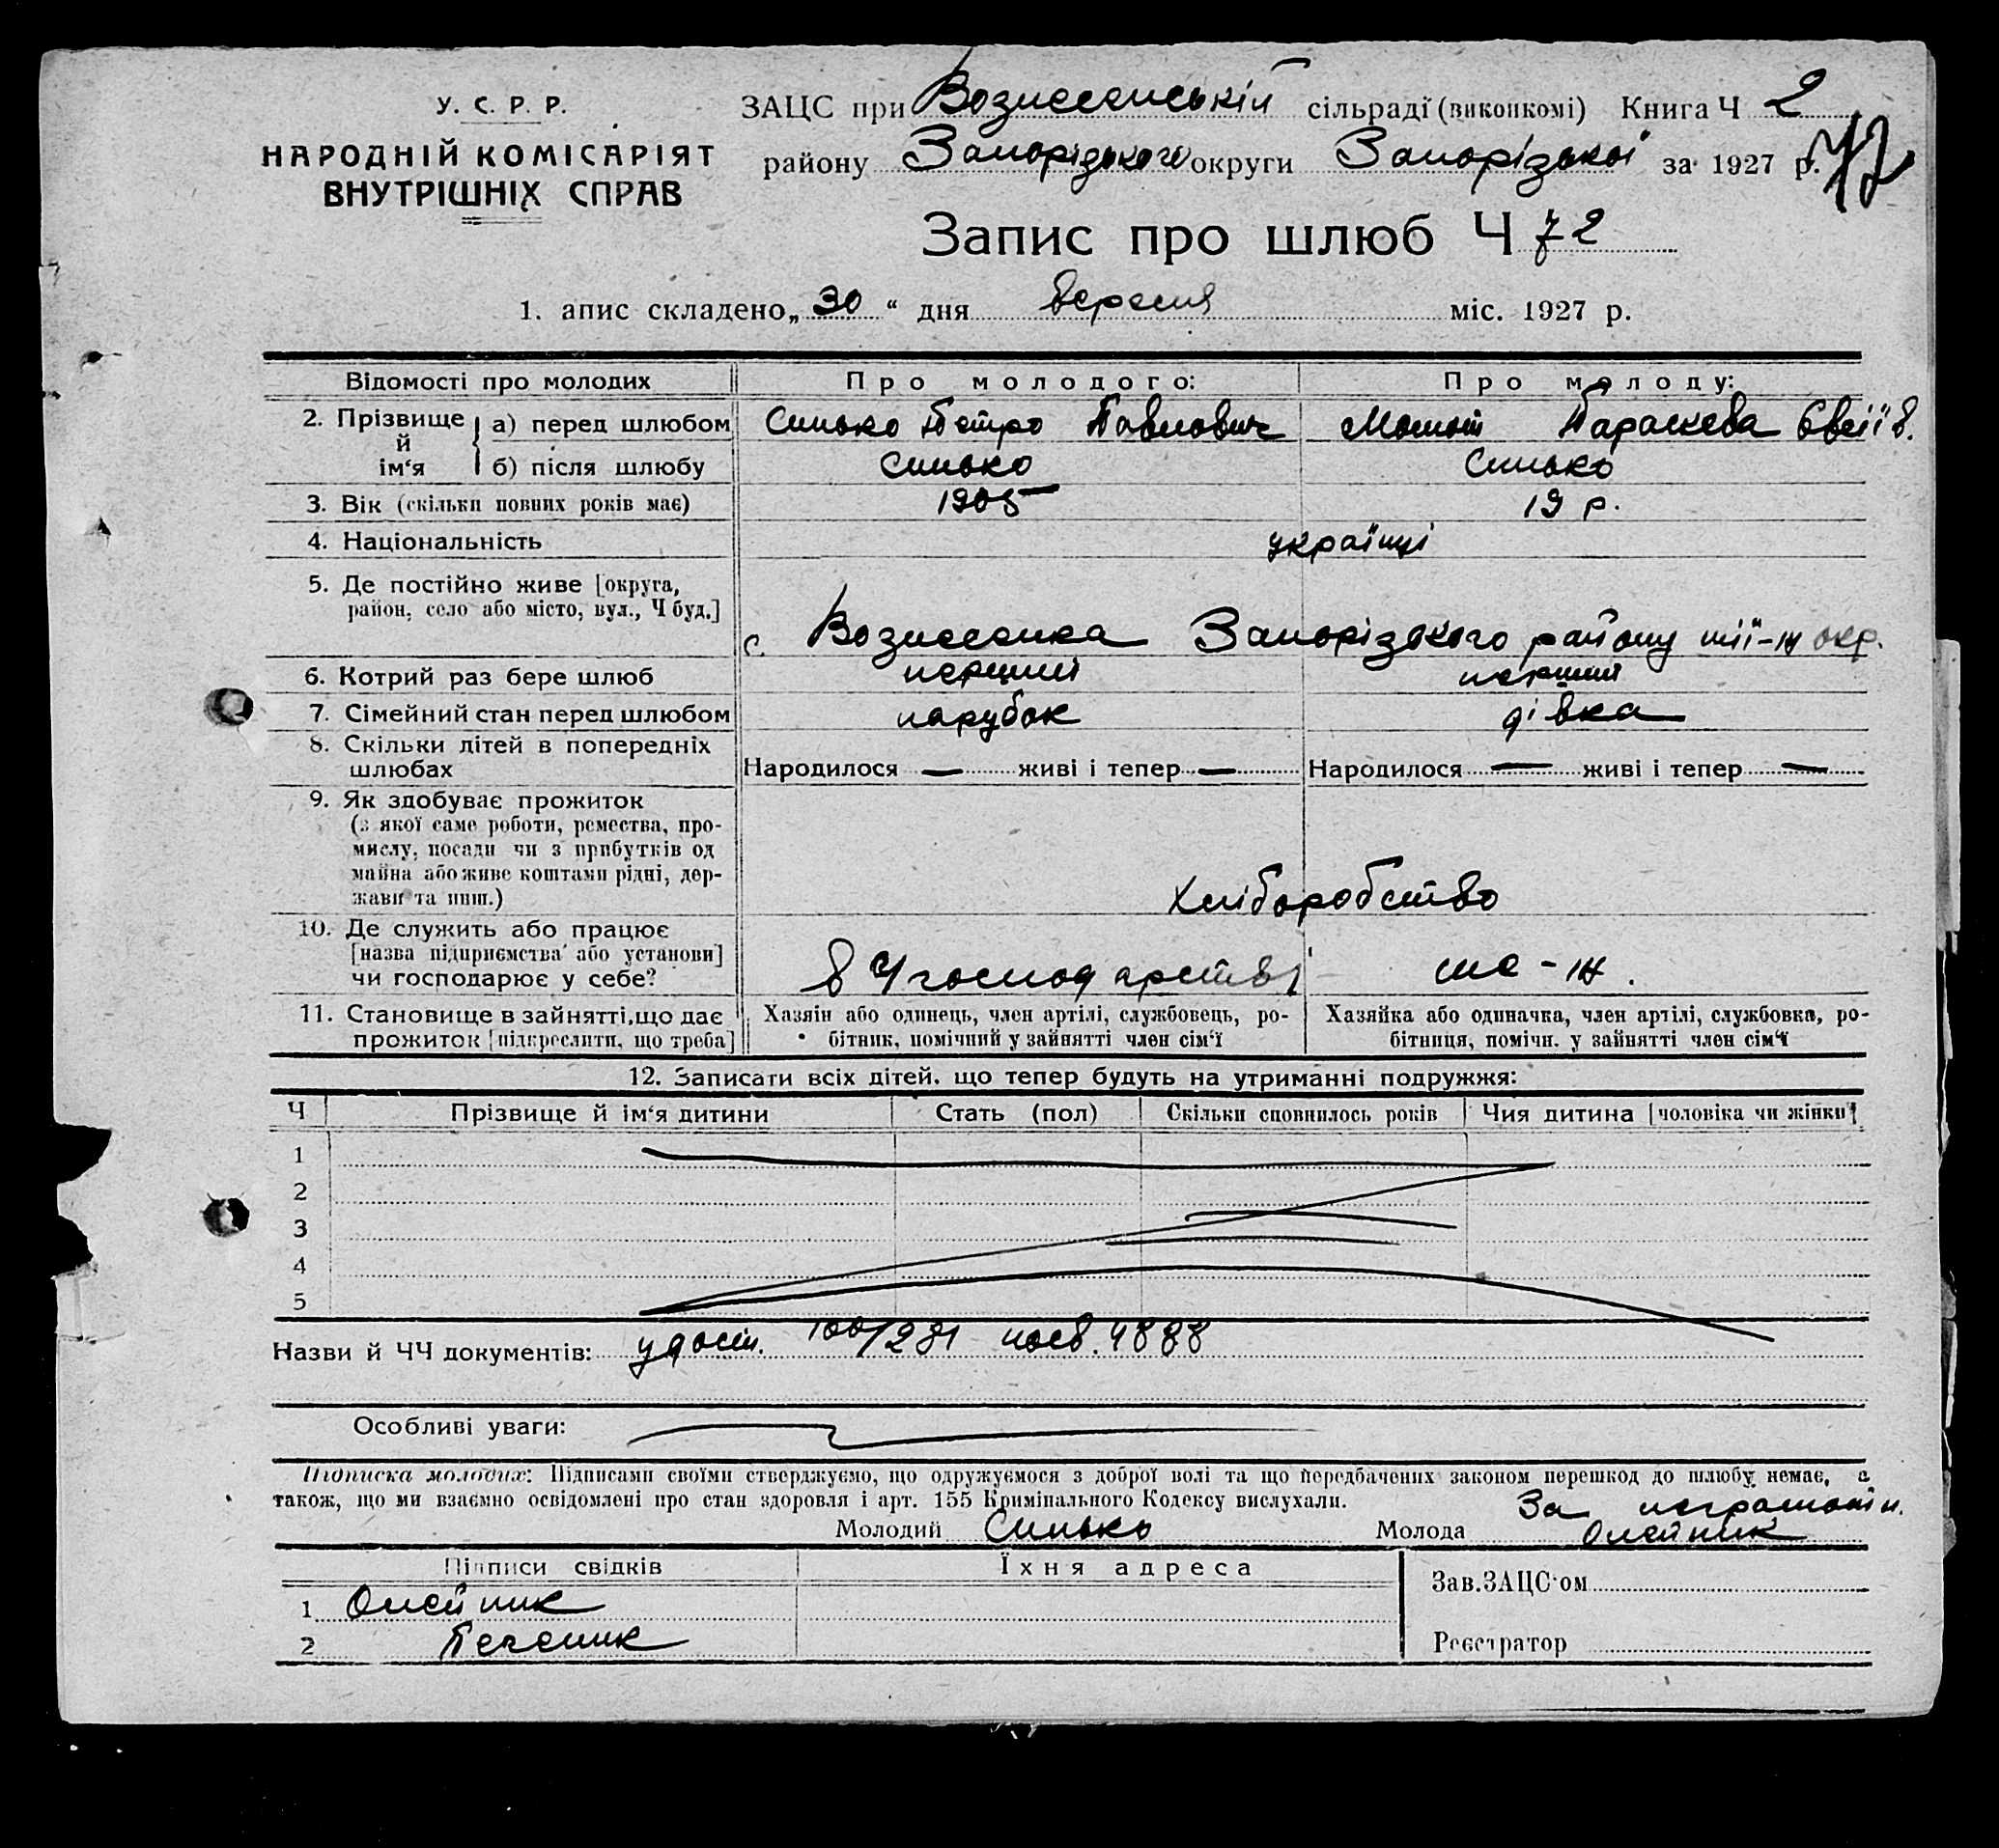 У. С. Р. Р.
НАРОДНІЙ КОМІСАРІЯТ
ВНУТРІШНІХ СПРАВ
ЗАЦС при Вознесенській сільраді (виконкомі) Книга Ч 2
району Запорізького округи Запорізької за 1927 р.
72
Запис про шлюб Ч 72
1. апис складено „ 30 “ дня вересня міс. 1927 р.
Відомості про молодих Про молодого: Про молоду:
2. Прізвище й ім'я а) перед шлюбом Синько Петро Павлович Параскева Євсіїв.
б) після шлюбу Синько Синько
3. Вік (скільки повних років має) 1905 19 р.
4. Національність українці
5. Де постійно живе [округа,
район, село або місто, вул., Ч буд.]
с. Вознесенка Запорізького району тії-ж окр.
6. Котрий раз бере шлюб перший перший
7. Сімейний стан перед шлюбом парубок дівка
8. Скільки дітей в попередніх
шлюбах Народилося — живі і тепер — Народилося — живі і тепер —
9. Як здобуває прожиток
(з якої саме роботи, ремества, про-
мислу, посади чи з прибутків од
майна або живе коштами рідні, дер-
жави та инш.) Хліборобство
10. Де служить або працює
[назва підприємства або установи]
чи господарює у себе? в господарстві те-ж.
11. Становище в зайнятті, що дає
прожиток [підкреслити, що треба]
Хазяїн або одинець, член артілі, службовець, ро-
бітник, помічний у зайнятті член сім'ї
Хазяйка або одиначка, член артілі, службовка, ро-
бітниця, помічн. у зайнятті член сім'ї
12. Записати всіх дітей, що тепер будуть на утриманні подружжя:
Ч Прізвище й ім'я дитини Стать (пол) Скільки сповнилось років Чия дитина [чоловіка чи жінки]
1
2
3
4
5
Назви й ЧЧ документів: удост. 100/281 посв. 4888
Особливі уваги:
Підписка молодих: Підписами своїми стверджуємо, що одружуємося з доброї волі та що передбачених законом перешкод до шлюбу немає, а
також, що ми взаємно освідомлені про стан здоровля і арт. 155 Кримінального Кодексу вислухали.
Молодий Синько Молода За неграмотн.
Олейник
Підписи свідків Їхня адреса
1 Олейник
2
Зав. ЗАЦС'ом
Реєстратор